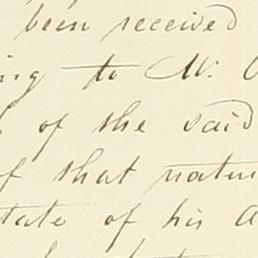 been received
ing to W.
of the said
of that natu
tate of his a